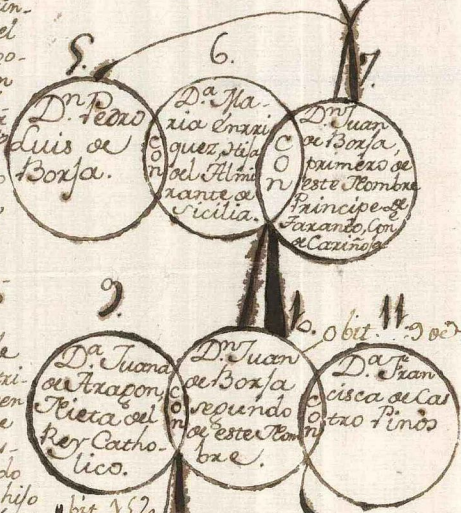 5.
6.
7.
Dⁿ Pedro
Luis de
Borja.
con
D.ª Ma-
ria enrri
quez, Hija
del Almi
rante de
Sicilia.
CON
Dⁿ Juan
de Borja,
primero de
este Nombre
Principe de
Taranto, Con
de Cariñola
9.
10.
obit
11
Dª Juana
de Aragon,
Nieta del
Rey Catho-
lico.
CON
D.ⁿ Juan
de Borja
segundo
de este Nom
bre.
CON
Dª Fran
cisca de Cas
tro Pinós
hijo